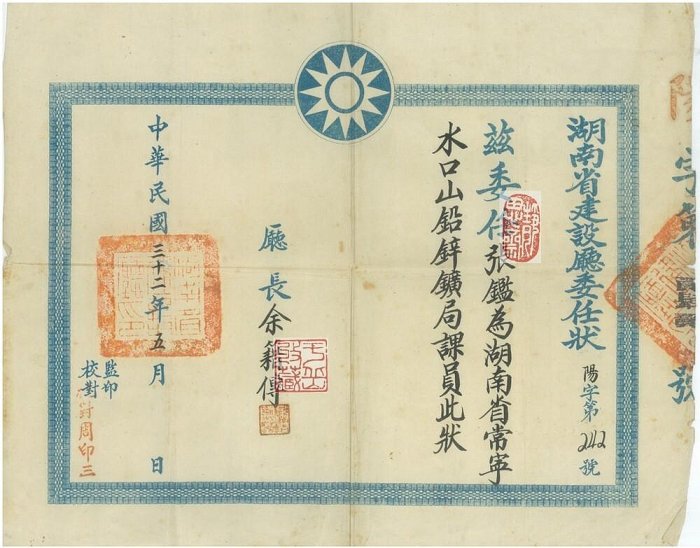 湖南省建設廳委任狀
陽字第242號
茲委任張鑑為湖南省常寧
水口山鉛鋅鑛局課員此狀
廳長余籍傳
中華民國三十二年五月 日
監印
校對
周印三